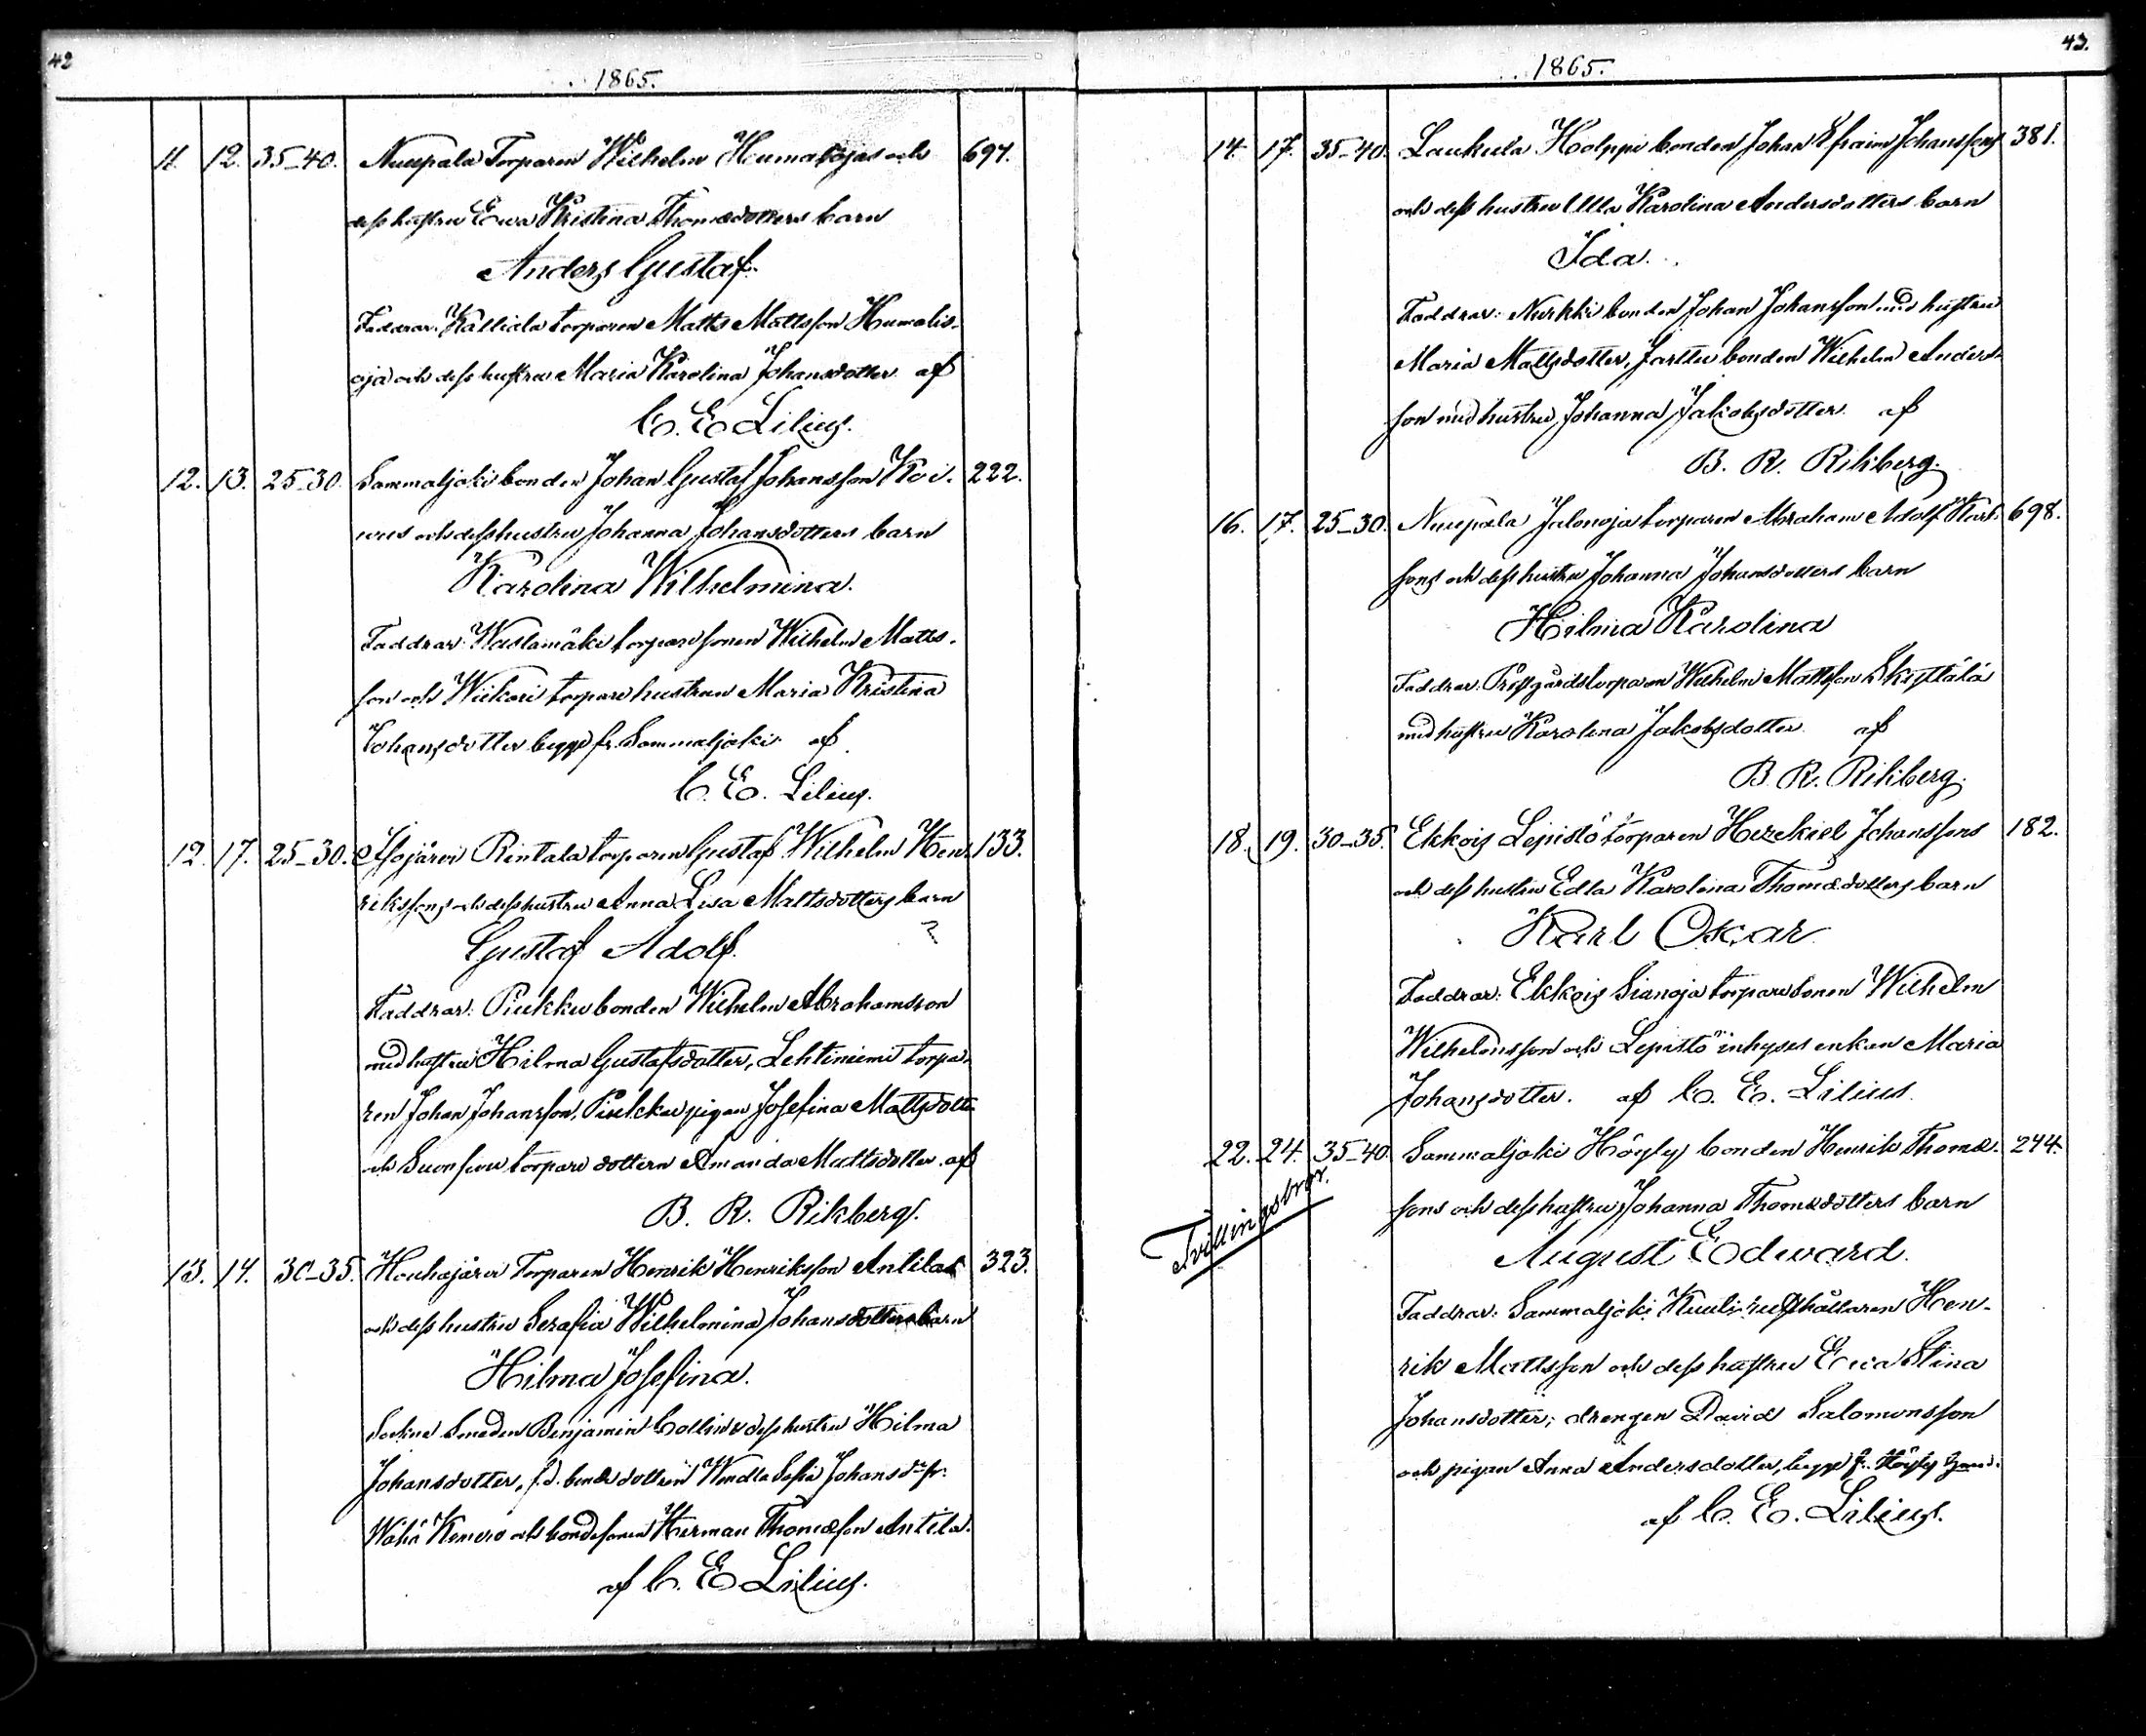 42
1865.
11. 12. 35-40. Nuupala Torparen Wilhelm Humalojas och 697.
dess hustru Ewa Kristina Thomædotters barn
Anders Gustaf.
Faddrar: Kalliala torparen Matts Mattsson Humalis-
oja och dess hustru Maria Karolina Johansdotter af
C. E. Lilius.
12. 13. 25-30. Sammaljoki bonden Johan Gustaf Johansson Koi- 222.
wus och dess hustru Johanna Johansdotters barn
Karolina Wilhelmina.
Faddrar: torparesonen Wilhelm Matts-
son och Wiikari torparehustrun Maria Kristina
Johansdotter begge fr. Sammaljoki af
C. E. Lilius.
12. 17. 25-30. Isojärvi Rintala torparen Gustaf Wilhelm Hen- 133.
rikssons och dess hustru Anna Lisa Mattsdotters barn
Gustaf Adolf.
Faddrar: Piukku bonden Wilhelm Abrahamsson
med hustru Hilma Gustafsdotter, Lehtiniemi torpa-
ren Johan Johansson, Piukku pigan Josefina Mattsdotter
och torpare dottern Amanda Mattsdotter. af
B. R. Rikberg.
13. 14. 30-35. Houhajärvi Torparen Henrik Henriksson Antilas 323.
och dess hustru Serafia Wilhelmina Johansdotters barn
Hilma Josefina.
Sockne Smeden Benjamin Collin & dess hustru Hilma
Johansdotter, f.d. bonde dottren Wendla Sofia Johansdr fr.
Wähä och bondesonen Herman Thomæson Antila.
af C. E. Lilius.
43.
1865.
14. 17. 35-40. Laukula Holppi bonden Johan Efraim Johanssons 381.
och dess hustru Ulla Karolina Andersdotters barn
Ida.
Faddrar: Nurkki bonden Johan Johansson med hustru
Maria Mattsdotter, bonden Wilhelm Anders-
son med hustru Johanna Jakobsdotter af
B. R. Rikberg.
16. 17. 25-30. Nuupala Jalonoja torparen Abraham Adolf Karl- 698.
sons och dess hustru Johanna Johansdotters barn
Hilma Karolina
Faddrar: Prestgårdstorparen Wilhelm Mattsson Skyttälä
med hustru Karolina Jakobsdotter af
B. R. Rikberg.
18. 19. 30-35. Ekkois Lepistö torparen Hezekiel Johanssons 182.
och dess hustru Edla Karolina Thomædotters barn
Karl Oskar
Faddrar: Ekkois Sianoja torparesonen Wilhelm
Wilhelmsson och Lepistö inhyses enkan Maria
Johansdotter. af C. E. Lilius.
22. 24. 35-40. Sammaljoki Höyly bonden Henrik Thomæ- 244.
sons och dess hustru Johanna Thomædotters barn
Tvillingsbror.
August Edward.
Faddrar: Sammaljoki Kuuli rusthållaren Hen-
rik Mattsson och dess hustru Ewa Stina
Johansdotter; drengen David Salomonsson
och pigan Anna Andersdotter, begge fr. Höyly
af C. E. Lilius.